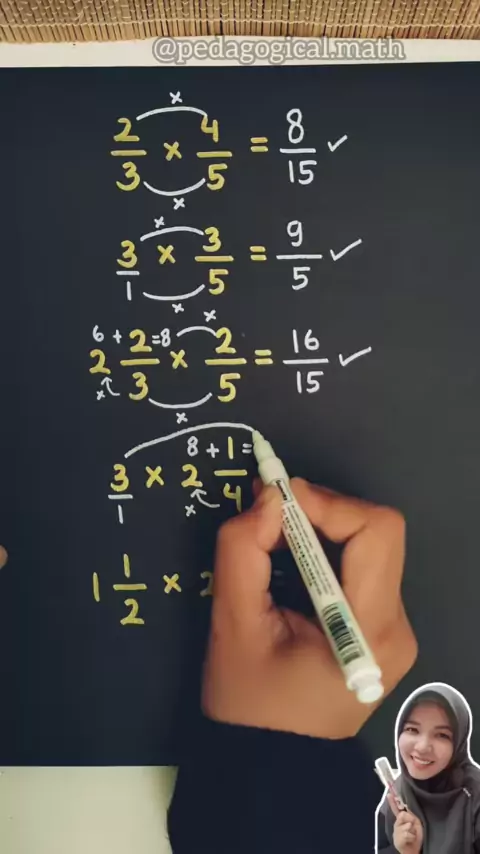 @pedagogical.math
2/3 × 4/5 = 8/15 ✓
3/1 × 3/5 = 9/5 ✓
6 + 2 = 8
2 2/3 × 2/5 = 16/15 ✓
8 + 1 =
3/1 × 2 1/4
1 1/2 × 2